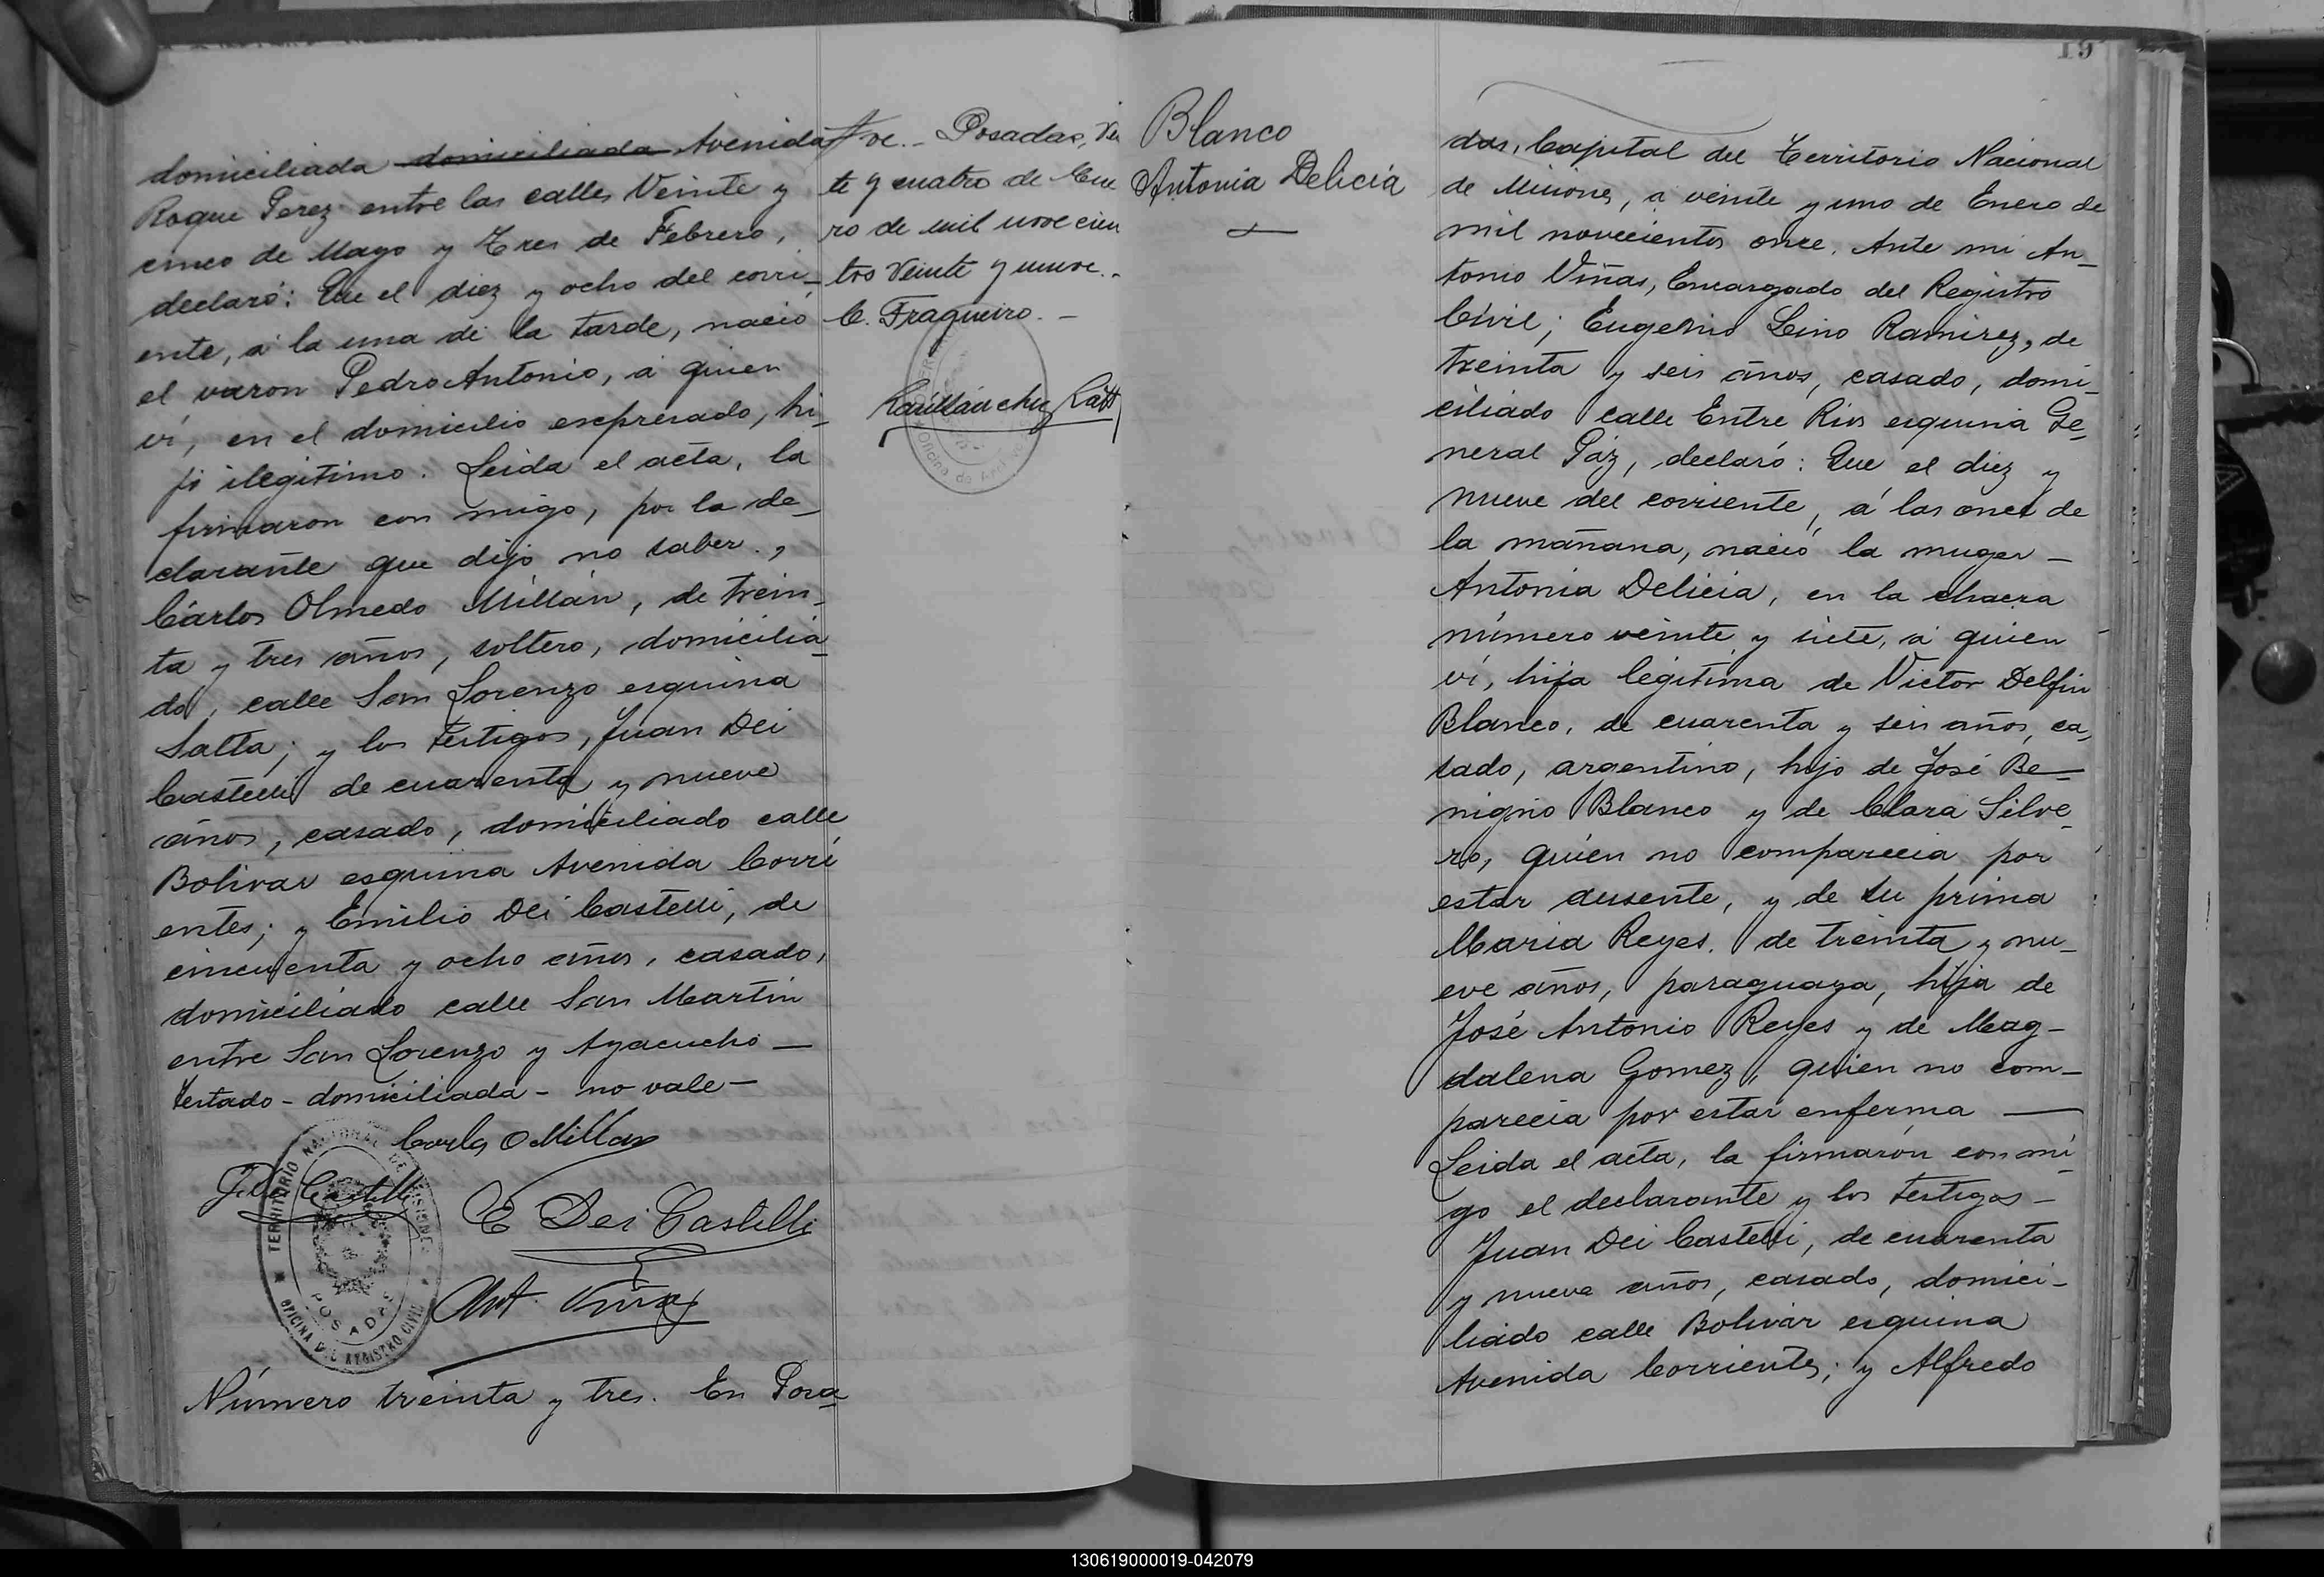 domiciliada domiciliada Avenida
Roque Perez entre las calles Veinte y
cinco de Mayo y Tres de Febrero,
declaró: Que el diez y ocho del corri_
ente, á la una de la tarde, nació
el varon Pedro Antonio, á quien
ví, en el domicilio expresado, hi_
jo ilegitimo. Leida el acta, la
firmaron con migo, por la de_
clarante que dijo no saber,
Cárlos Olmedo Millán, de trein_
ta y tres años, soltero, domicilia_
do, calle San Lorenzo esquina
Salta; y los testigos, Juan Dei
Castelli de cuarenta y nueve
años, casado, domiciliado calle
Bolivar esquina Avenida Corri
entes; y Emilio Dei Castelli, de
cincuenta y ocho años, casado,
domiciliado calle San Martin
entre San Lorenzo y Ayacucho _
Testado - domiciliada - no vale -
Carlos O Millan
J. Dei Castelli
E Dei Castelli
Ant. Viñas
TERRITORIO NACIONAL DE MISIONES
POSADAS
OFICINA DEL REGISTRO CIVIL
Número treinta y tres. En Posa_
ve.- Posadas, Vei
te y cuatro de Ene
ro de mil novecien
tos Veinte y nueve.-
C. Fragueiro.-
Oficina de
Blanco
Antonia Delicia
19
das, Capital del Territorio Nacional
de Misiones, á veinte y uno de Enero de
mil novecientos once, Ante mi An_
tonio Viñas, Encargado del Registro
Civil; Eugenio Lino Ramirez, de
treinta y seis años, casado, domi_
ciliado calle Entre Rios esquina Ge_
neral Páz, declaró: Que el diez y
nueve del corriente, á las once de
la mañana, nació la muger _
Antonia Delicia, en la chacra
número veinte y siete, á quien
ví, hija legítima de Victor Delfin
Blanco, de cuarenta y seis años, ca_
sado, argentino, hijo de José Be_
nigno Blanco y de Clara Silve_
ro, quien no comparecia por
estar ausente, y de su prima
Maria Reyes, de treinta y nu_
eve años, paraguaya, hija de
José Antonio Reyes y de Mag-
dalena Gomez, quien no com_
parecia por estar enferma _
Leida el acta, la firmarón con mi_
go el declarante y los testigos _
Juan Dei Castelli, de cuarenta
y nueve años, casado, domici-
liado calle Bolivar esquina
Avenida Corrientes; y Alfredo
130619000019-042079